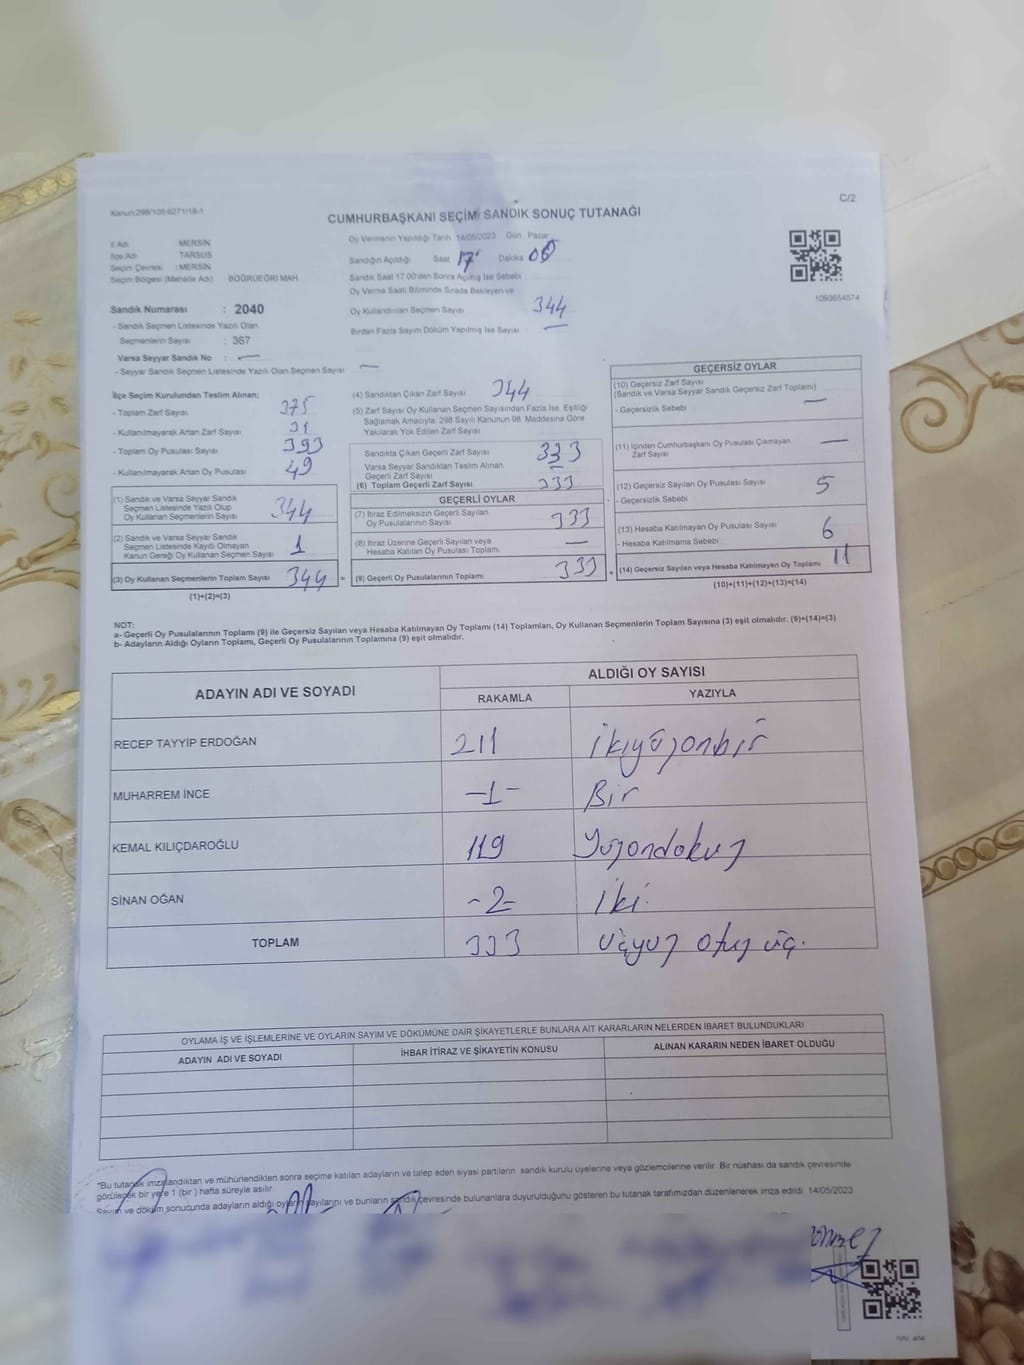 Kanun:298/105:6271/18-1
C/2
CUMHURBAŞKANI SEÇİMİ SANDIK SONUÇ TUTANAĞI
İl Adı MERSİN
İlçe Adı TARSUS
Seçim Çevresi :MERSİN
Seçim Bölgesi (Mahalle Adı) BÖĞRÜEĞRİ MAH.
Sandık Numarası : 2040
- Sandık Seçmen Listesinde Yazılı Olan
Seçmenlerin Sayısı : 367
Varsa Seyyar Sandık No : —
- Seyyar Sandık Seçmen Listesinde Yazılı Olan Seçmen Sayısı : —
Oy Vermenin Yapıldığı Tarih 14/05/2023 Gün Pazar
Sandığın Açıldığı Saat 17 Dakika 00
Sandık Saat 17.00'den Sonra Açılmış İse Sebebi
Oy Verme Saati Bitiminde Sırada Bekleyen ve
Oy Kullandırılan Seçmen Sayısı 344
Birden Fazla Sayım Döküm Yapılmış İse Sayısı —
1093654574
İlçe Seçim Kurulundan Teslim Alınan;
- Toplam Zarf Sayısı 375
- Kullanılmayarak Artan Zarf Sayısı 31
- Toplam Oy Pusulası Sayısı 393
- Kullanılmayarak Artan Oy Pusulası 49
(1) Sandık ve Varsa Seyyar Sandık
Seçmen Listesinde Yazılı Olup
Oy Kullanan Seçmenlerin Sayısı 344
(2) Sandık ve Varsa Seyyar Sandık
Seçmen Listesinde Kayıtlı Olmayan
Kanun Gereği Oy Kullanan Seçmen Sayısı 1
(3) Oy Kullanan Seçmenlerin Toplam Sayısı 344 =
(1)+(2)=(3)
(4) Sandıktan Çıkan Zarf Sayısı 344
(5) Zarf Sayısı Oy Kullanan Seçmen Sayısından Fazla İse, Eşitliği
Sağlamak Amacıyla, 298 Sayılı Kanunun 98. Maddesine Göre
Yakılarak Yok Edilen Zarf Sayısı
Sandıkta Çıkan Geçerli Zarf Sayısı 333
Varsa Seyyar Sandıktan Teslim Alınan
Geçerli Zarf Sayısı —
(6) Toplam Geçerli Zarf Sayısı 333
GEÇERLİ OYLAR
(7) İtiraz Edilmeksizin Geçerli Sayılan
Oy Pusulalarının Sayısı 333
(8) İtiraz Üzerine Geçerli Sayılan veya
Hesaba Katılan Oy Pusulası Toplamı —
(9) Geçerli Oy Pusulalarının Toplamı 333 +
GEÇERSİZ OYLAR
(10) Geçersiz Zarf Sayısı
(Sandık ve Varsa Seyyar Sandık Geçersiz Zarf Toplamı)
- Geçersizlik Sebebi : —
(11) İçinden Cumhurbaşkanı Oy Pusulası Çıkmayan
Zarf Sayısı —
(12) Geçersiz Sayılan Oy Pusulası Sayısı 5
- Geçersizlik Sebebi :
(13) Hesaba Katılmayan Oy Pusulası Sayısı 6
- Hesaba Katılmama Sebebi :
(14) Geçersiz Sayılan veya Hesaba Katılmayan Oy Toplamı 11
(10)+(11)+(12)+(13)=(14)
NOT:
a- Geçerli Oy Pusulalarının Toplamı (9) ile Geçersiz Sayılan veya Hesaba Katılmayan Oy Toplamı (14) Toplamları, Oy Kullanan Seçmenlerin Toplam Sayısına (3) eşit olmalıdır. (9)+(14)=(3)
b- Adayların Aldığı Oyların Toplamı, Geçerli Oy Pusulalarının Toplamına (9) eşit olmalıdır.
ADAYIN ADI VE SOYADI ALDIĞI OY SAYISI
RAKAMLA YAZIYLA
RECEP TAYYİP ERDOĞAN 211 ikiyüzonbir
MUHARREM İNCE -1- Bir
KEMAL KILIÇDAROĞLU 119 Yüzondokuz
SİNAN OĞAN -2- iki.
TOPLAM 333 üçyüz otuz üç.
OYLAMA İŞ VE İŞLEMLERİNE VE OYLARIN SAYIM VE DÖKÜMÜNE DAİR ŞİKAYETLERLE BUNLARA AİT KARARLARIN NELERDEN İBARET BULUNDUKLARI
ADAYIN ADI VE SOYADI İHBAR İTİRAZ VE ŞİKAYETİN KONUSU ALINAN KARARIN NEDEN İBARET OLDUĞU
*Bu tutanak imzalandıktan ve mühürlendikten sonra seçime katılan adayların ve talep eden siyasi partilerin sandık kurulu üyelerine veya gözlemcilerine verilir. Bir nüshası da sandık çevresinde
görülecek bir yere 1 (bir) hafta süreyle asılır.
Sayım ve döküm sonucunda adayların aldığı oyların sayılarını ve bunların sandık çevresinde bulunanlara duyurulduğunu gösteren bu tutanak tarafımızdan düzenlenerek imza edildi. 14/05/2023